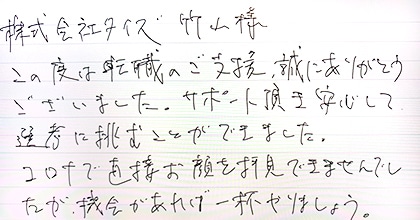 株式会社タイズ 竹山様
この度は転職のご支援、誠にありがとう
ございました。サポート頂き安心して
選考に挑むことができました。
コロナで直接お顔を拝見できませんでし
たが、機会があれば一杯やりましょう。